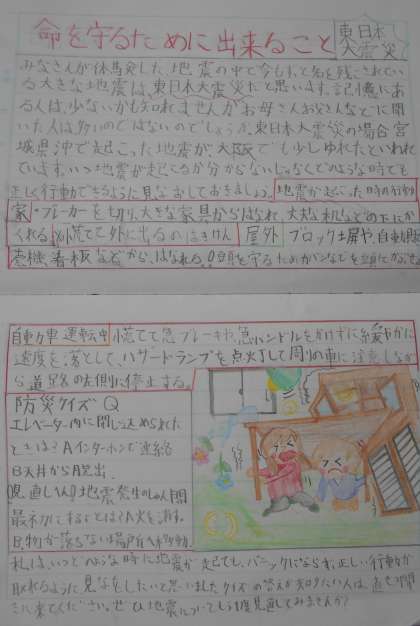 命を守るために出来ること
東日本大震災
みなさんが体験した地震の中で今も名を残されてい
る大きな地震は、東日本大震災だと思います。記憶にあ
る人は少ないかも知れませんがお母さんお父さんなどに聞
いた人は多いのではないのでしょうか。東日本大震災の場合宮
城県沖で起こった地震が大阪でも少しゆれたといわれ
ています。いつ地震が起こるか分からないしなどのような時でも
正しく行動できるように見なおしておきましょう。地震が起こった時の行動
家 ブレーカーを切り、大きな家具からはなれ、大丈な机などの下にか
くれる。慌てて外に出るのはきけん 屋外 ブロック塀や、自動販
売機、看板などから、はなれる。頭を守るためカバンなどを頭に
自動車運転中 慌てて急ブレーキや、急ハンドルをかけずに緩やかに
速度を落として、ハザードランプを点火丁して周りの車に注意しなが
ら道路の左側に停止する。
防災クイズQ
エレベーター内に閉じ込められた
ときは？Aインターホンで連絡
B天井から脱出.
地震発生のしゅん間
最初にすることは？A火を消す.
B.物が落ちない場所へ移動.
私は、いつどのような時に地震が起きても、パニックにならず、正しい行動が
取れるように見なをしたいと思いましたクイズの答えが知りたい人は、直せつ聞
きに来てください。ぜひ地震についてもう1度見直してみませんか？